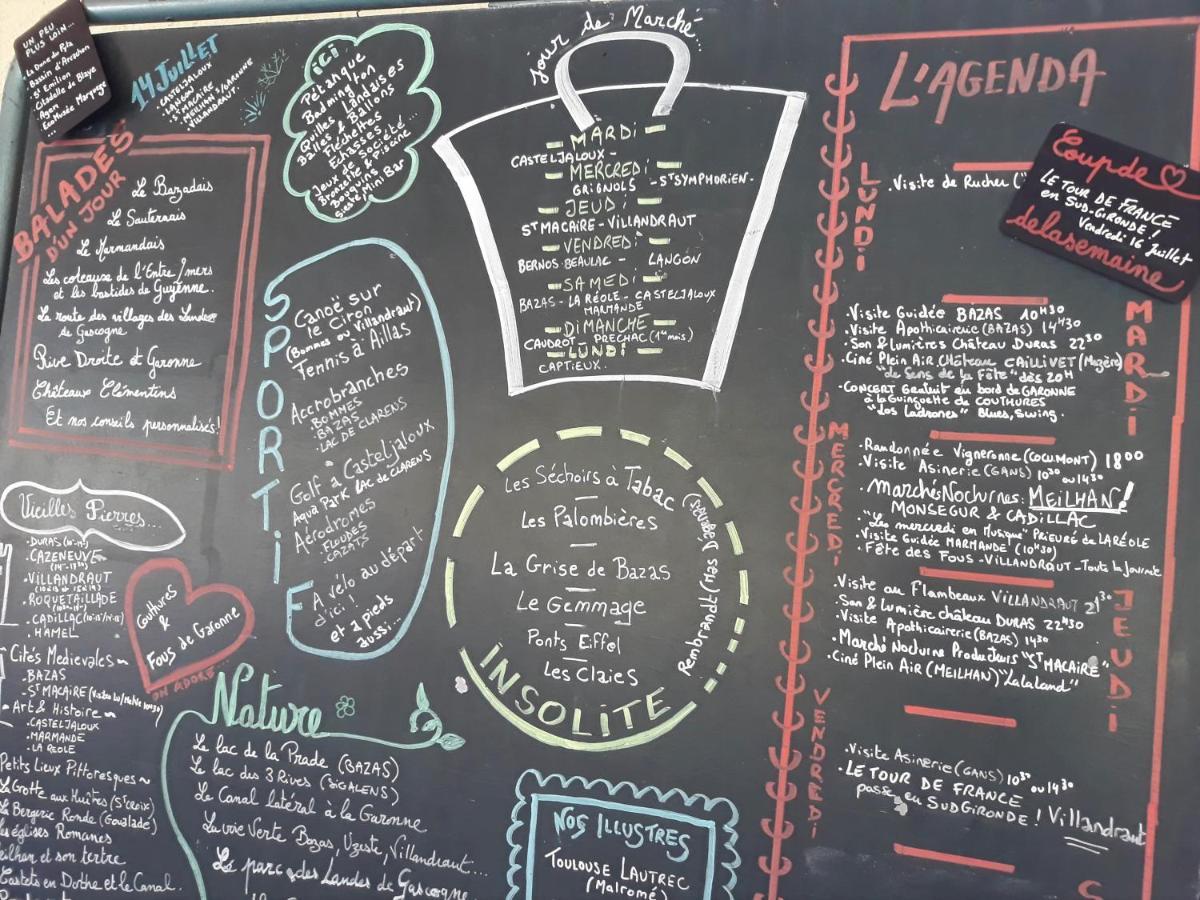 UN PEU
PLUS LOIN...
• La Dune du Pyla
• Bassin d'Arcachon
• St Emilion
• Citadelle de Blaye
• Agen
• EcoMusée Marquèze
14 JUILLET
• CASTELJALOUX
• LANGON
• ST MACAIRE
• MEILHAN S/GARONNE
• VILLANDRAUT.
...
BALADES
D'UN JOUR
Le Bazadais
Le Sauternais
Le Marmandais
Les coteaux de l'Entre 2 mers
et les bastides de Guyenne.
La route des villages des Landes
de Gascogne
Rive Droite et Garonne
Châteaux Clémentins
Et nos conseils personnalisés!
ici
Pétanque
Badminton
Quilles Landaises
Balles & Ballons
Fléchettes
Échasses...
Jeux de Société
Bronzette & Piscine
Bouquins
Sieste, Mini Bar
SPORTIF
Canoë sur
le Ciron
(Bommes ou Villandraut)
Tennis à Aillas
Accrobranches
• BOMMES
• BAZAS
• LAC DE CLARENS
Golf à Casteljaloux
Aqua Park LAC DE CLARENS
Aérodromes
• FLUDES
• CAZATS
A vélo au départ
d'ici!
et à pieds
aussi...
Jour de Marché...
MARDI
CASTELJALOUX -
MERCREDI
GRIGNOLS - ST SYMPHORIEN -
JEUDI
ST MACAIRE - VILLANDRAUT
VENDREDI
BERNOS BEAULAC - LANGON
SAMEDI
BAZAS - LA RÉOLE - CASTELJALOUX
MARMANDE
DIMANCHE
CAUDROT - PRECHAC (1er mois)
LUNDI
CAPTIEUX.
Les Séchoirs à Tabac
Les Palombières
La Grise de Bazas
Le Gemmage
Ponts Eiffel
Les Claies
Rembrandt (Mas D'Agenais)
INSOLITE
Vieilles Pierres...
• CAZENEUVE
• VILLANDRAUT
• ROQUETAILLADE
• CADILLAC
• HAMEL
• Cités Medievales ~
• BAZAS
• ST MACAIRE
• Art & Histoire ~
• CASTELJALOUX
• MARMANDE
• LA REOLE
Petits Lieux Pittoresques ~
La Grotte aux Huîtres (St Croix)
La Bergerie Ronde (Goualade)
les églises Romanes
Meilhan et son tertre
Castets en Dorthe et le Canal.
Couthures
&
Fous de Garonne
ON ADORE...
Nature
Le lac de la Prade (BAZAS)
Le lac des 3 Rives (SIGALENS)
Le Canal latéral à la Garonne
La voie Verte Bazas, Uzeste, Villandraut...
Le parc des Landes de Gascogne
NOS ILLUSTRES
TOULOUSE LAUTREC
(Malromé)
L'AGENDA
Coup de
LE TOUR DE FRANCE
en SUD-GIRONDE!
Vendredi 16 juillet
de la semaine
LUNDI
• Visite de Rucher
MARDI
• Visite Guidée BAZAS 10H30
• Visite Apothicairerie (BAZAS) 14H30
• Son & lumières Château DURAS 22H30
• Ciné Plein AIR CHâteau CAILLIVET (Mazère)
"le Sens de la Fête" dès 20H
• CONCERT Gratuit au bord de GARONNE
à la Guinguette de COUTHURES
"Los Ladrones" Blues, Swing.
MERCREDI
• Randonnée Vigneronne (COCUMONT) 18H00
• Visite Asinerie (GANS) 10H30 ou 14H30
• Marchés Nocturnes: MEILHAN!
MONSEGUR & CADILLAC
• "Les mercredi en Musique" PRIEURÉ de LA RÉOLE
• Visite Guidée MARMANDE (10H30)
• Fête des FOUS - VILLANDRAUT - Toute la Journée
JEUDI
• Visite au Flambeaux VILLANDRAUT 21H30
• Son & Lumière château DURAS 22H30
• Visite Apothicairerie (BAZAS) 14H30
• Marché Nocturne Producteurs "ST MACAIRE"
• Ciné Plein Air (MEILHAN) "Lalaland"
VENDREDI
• Visite Asinerie (GANS) 10H30 ou 14H30
• LE TOUR DE FRANCE
passe en SUD GIRONDE! Villandraut
S